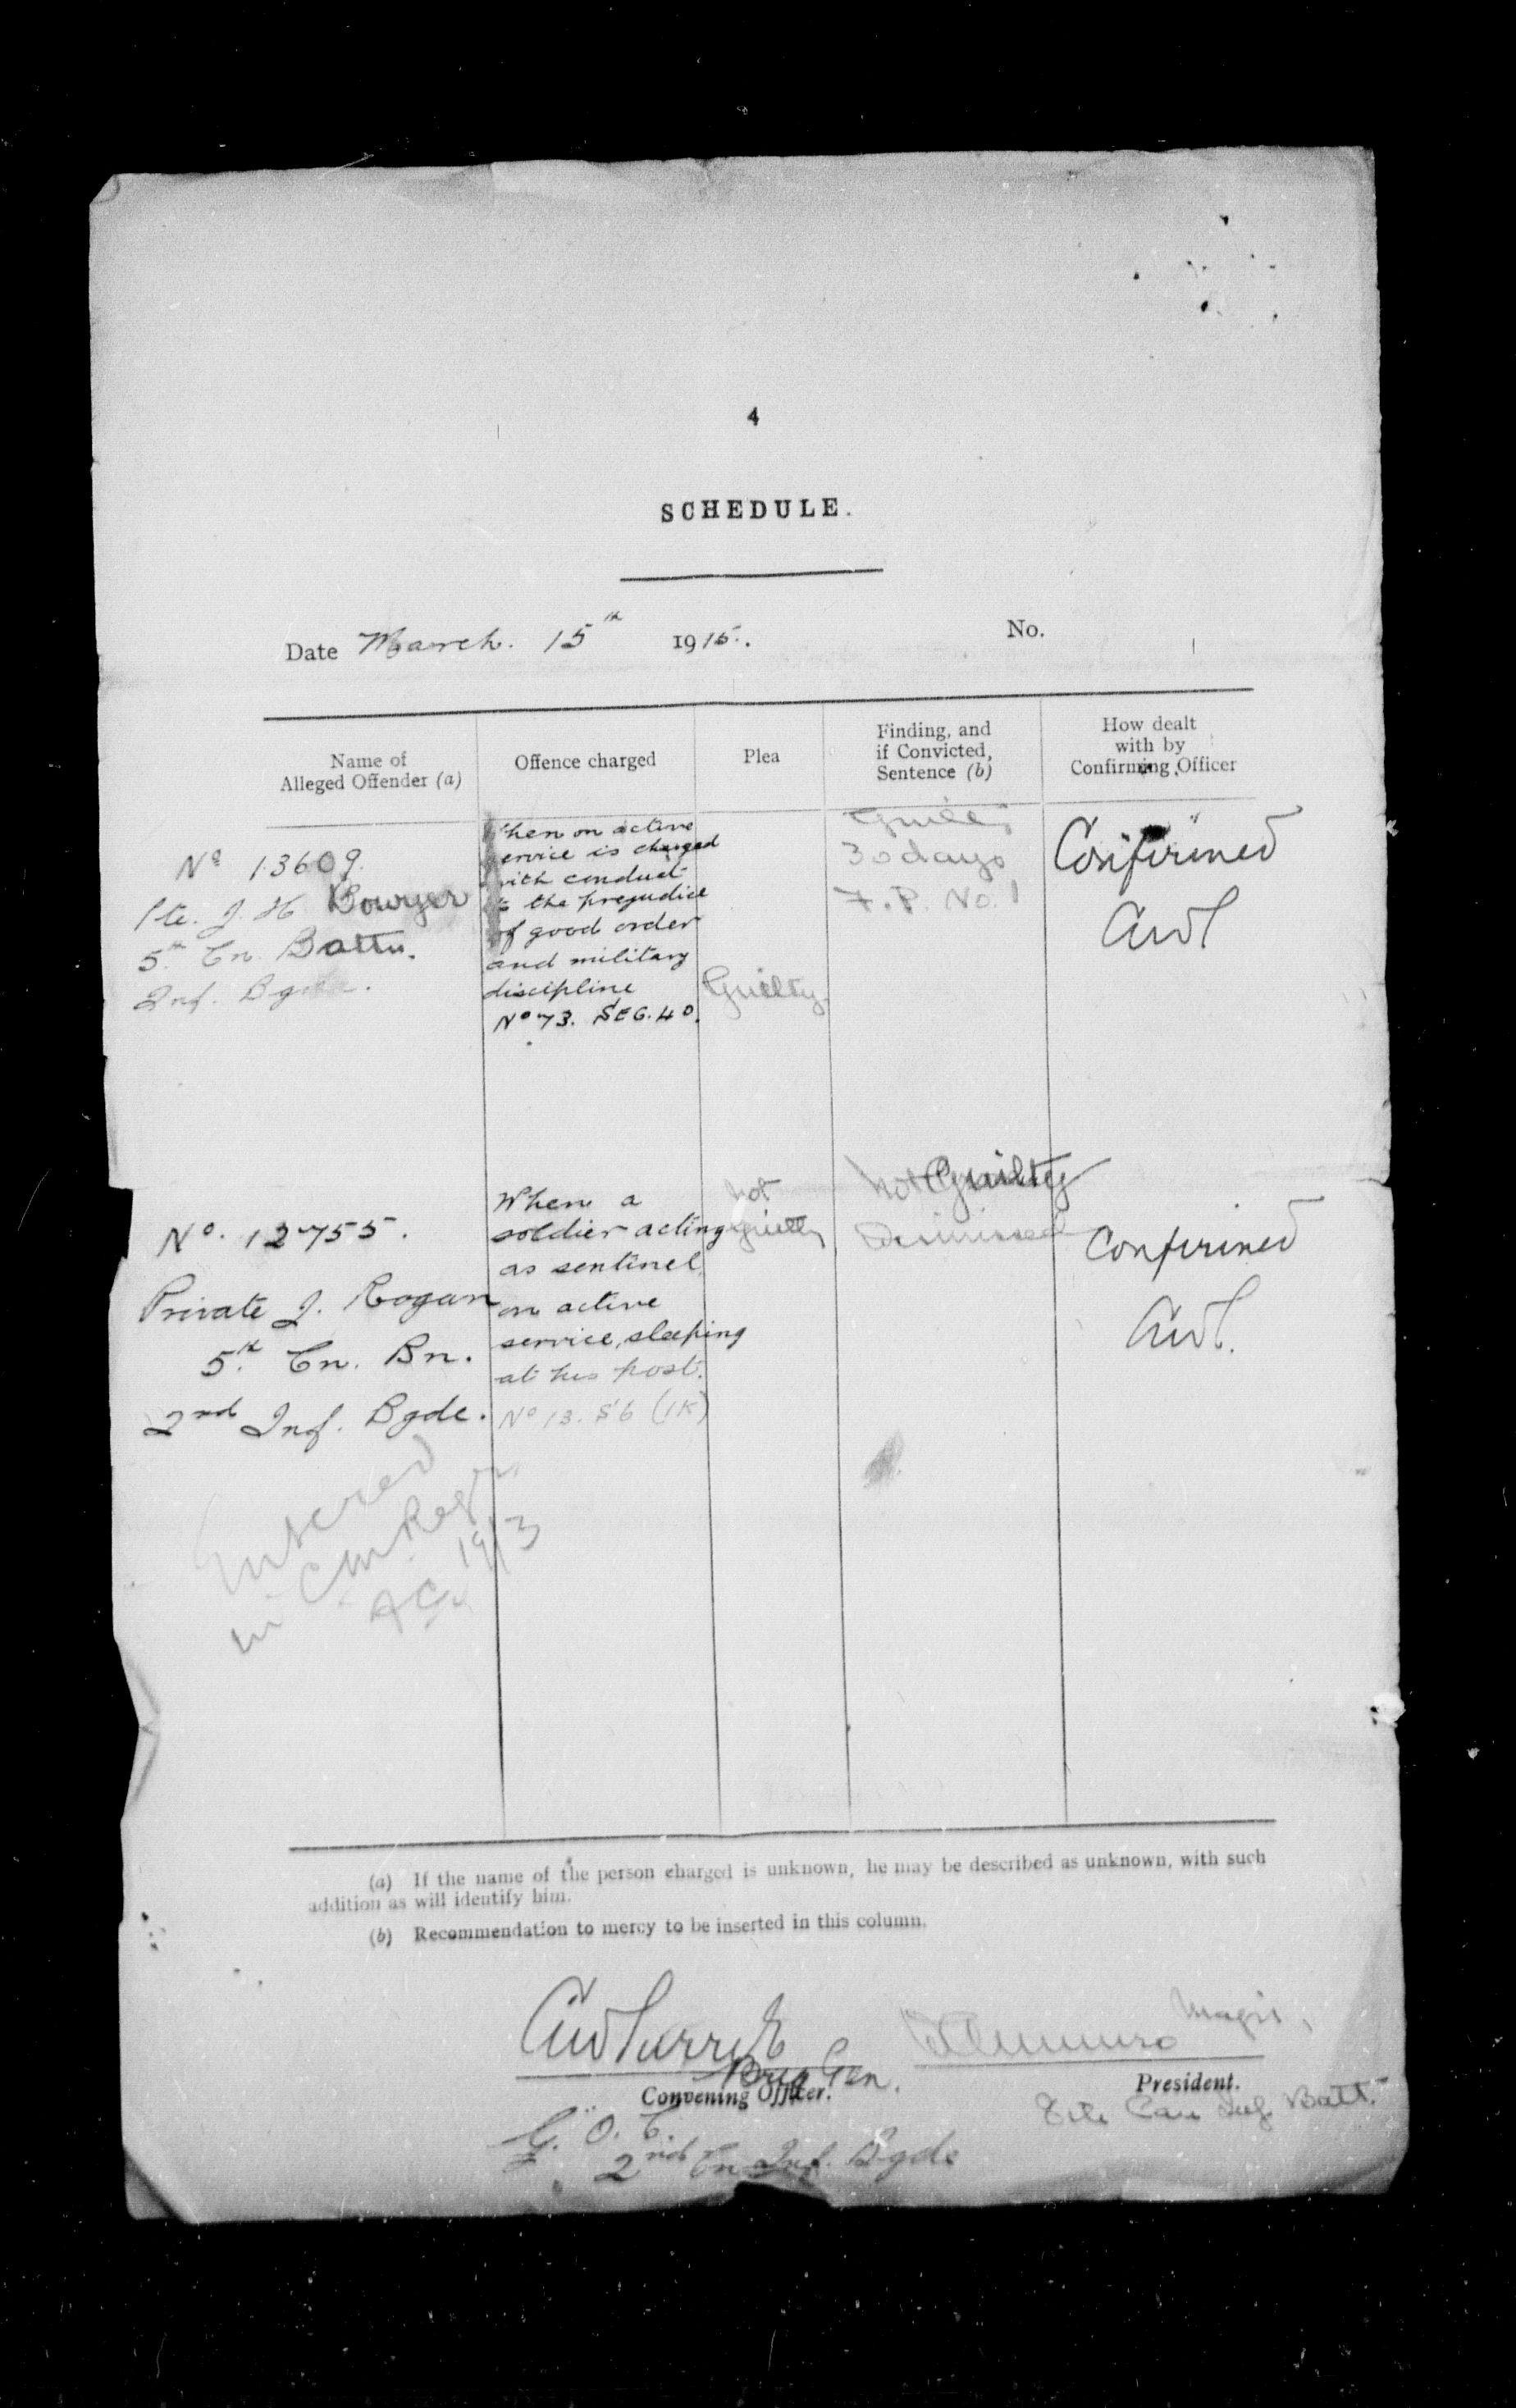 4
SCHEDULE.
Date March. 15th 1915. No.
Name of
Alleged Offender (a)
Offence charged
Plea
Finding, and
if Convicted,
Sentence (b)
How dealt
with by
Confirming Officer
No 13609.
Pte. J. H Bowyer
5th Cn. Battn.
Inf. Bgde.
When on active
service is charged
with conduct
to the prejudice
of good order
and military
discipline
No 73. SEC. 40.
Guilty.
Guilty
30 days
F.P. No. 1
Confirmed
No. 12755.
Private J. Rogan
5th Cn. Bn.
2nd Inf. Bgde.
When a
soldier acting
as sentinel
on active
service, sleeping
at his post.
No 13. S 6 (1K)
Not
guilty
Not Guilty
Dismissed
Confirmed
Entered
in CM Regr
19/3
(a) If the name of the person charged is unknown, he may be described as unknown, with such
addition as will identify him.
(b) Recommendation to mercy to be inserted in this column.
Brig Gen.
Convening Officer.
G. O. C.
2nd Cn Inf. Bgde
Major,
President.
Can Inf. Batt.